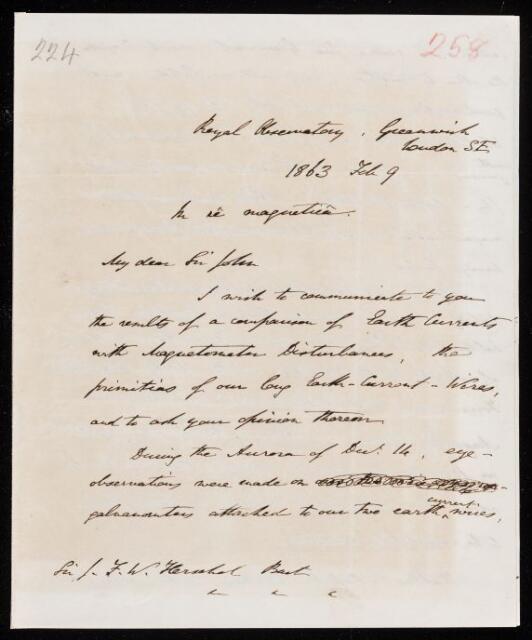 224
258
Royal Observatory, Greenwich
London SE
1863 Feb 9
In rê magneticâ.
My dear Sir John
I wish to communicate to you
the results of a comparison of Earth Currents
with Magnetometer Disturbances, the
primitias of our long Earth-Current-Wires,
and to ask your opinion thereon.
During the Aurora of Dec. 14, eye-
observations were made on
galvanometers attached to our two earth current wires,
Sir J. F. W. Herschel Bart